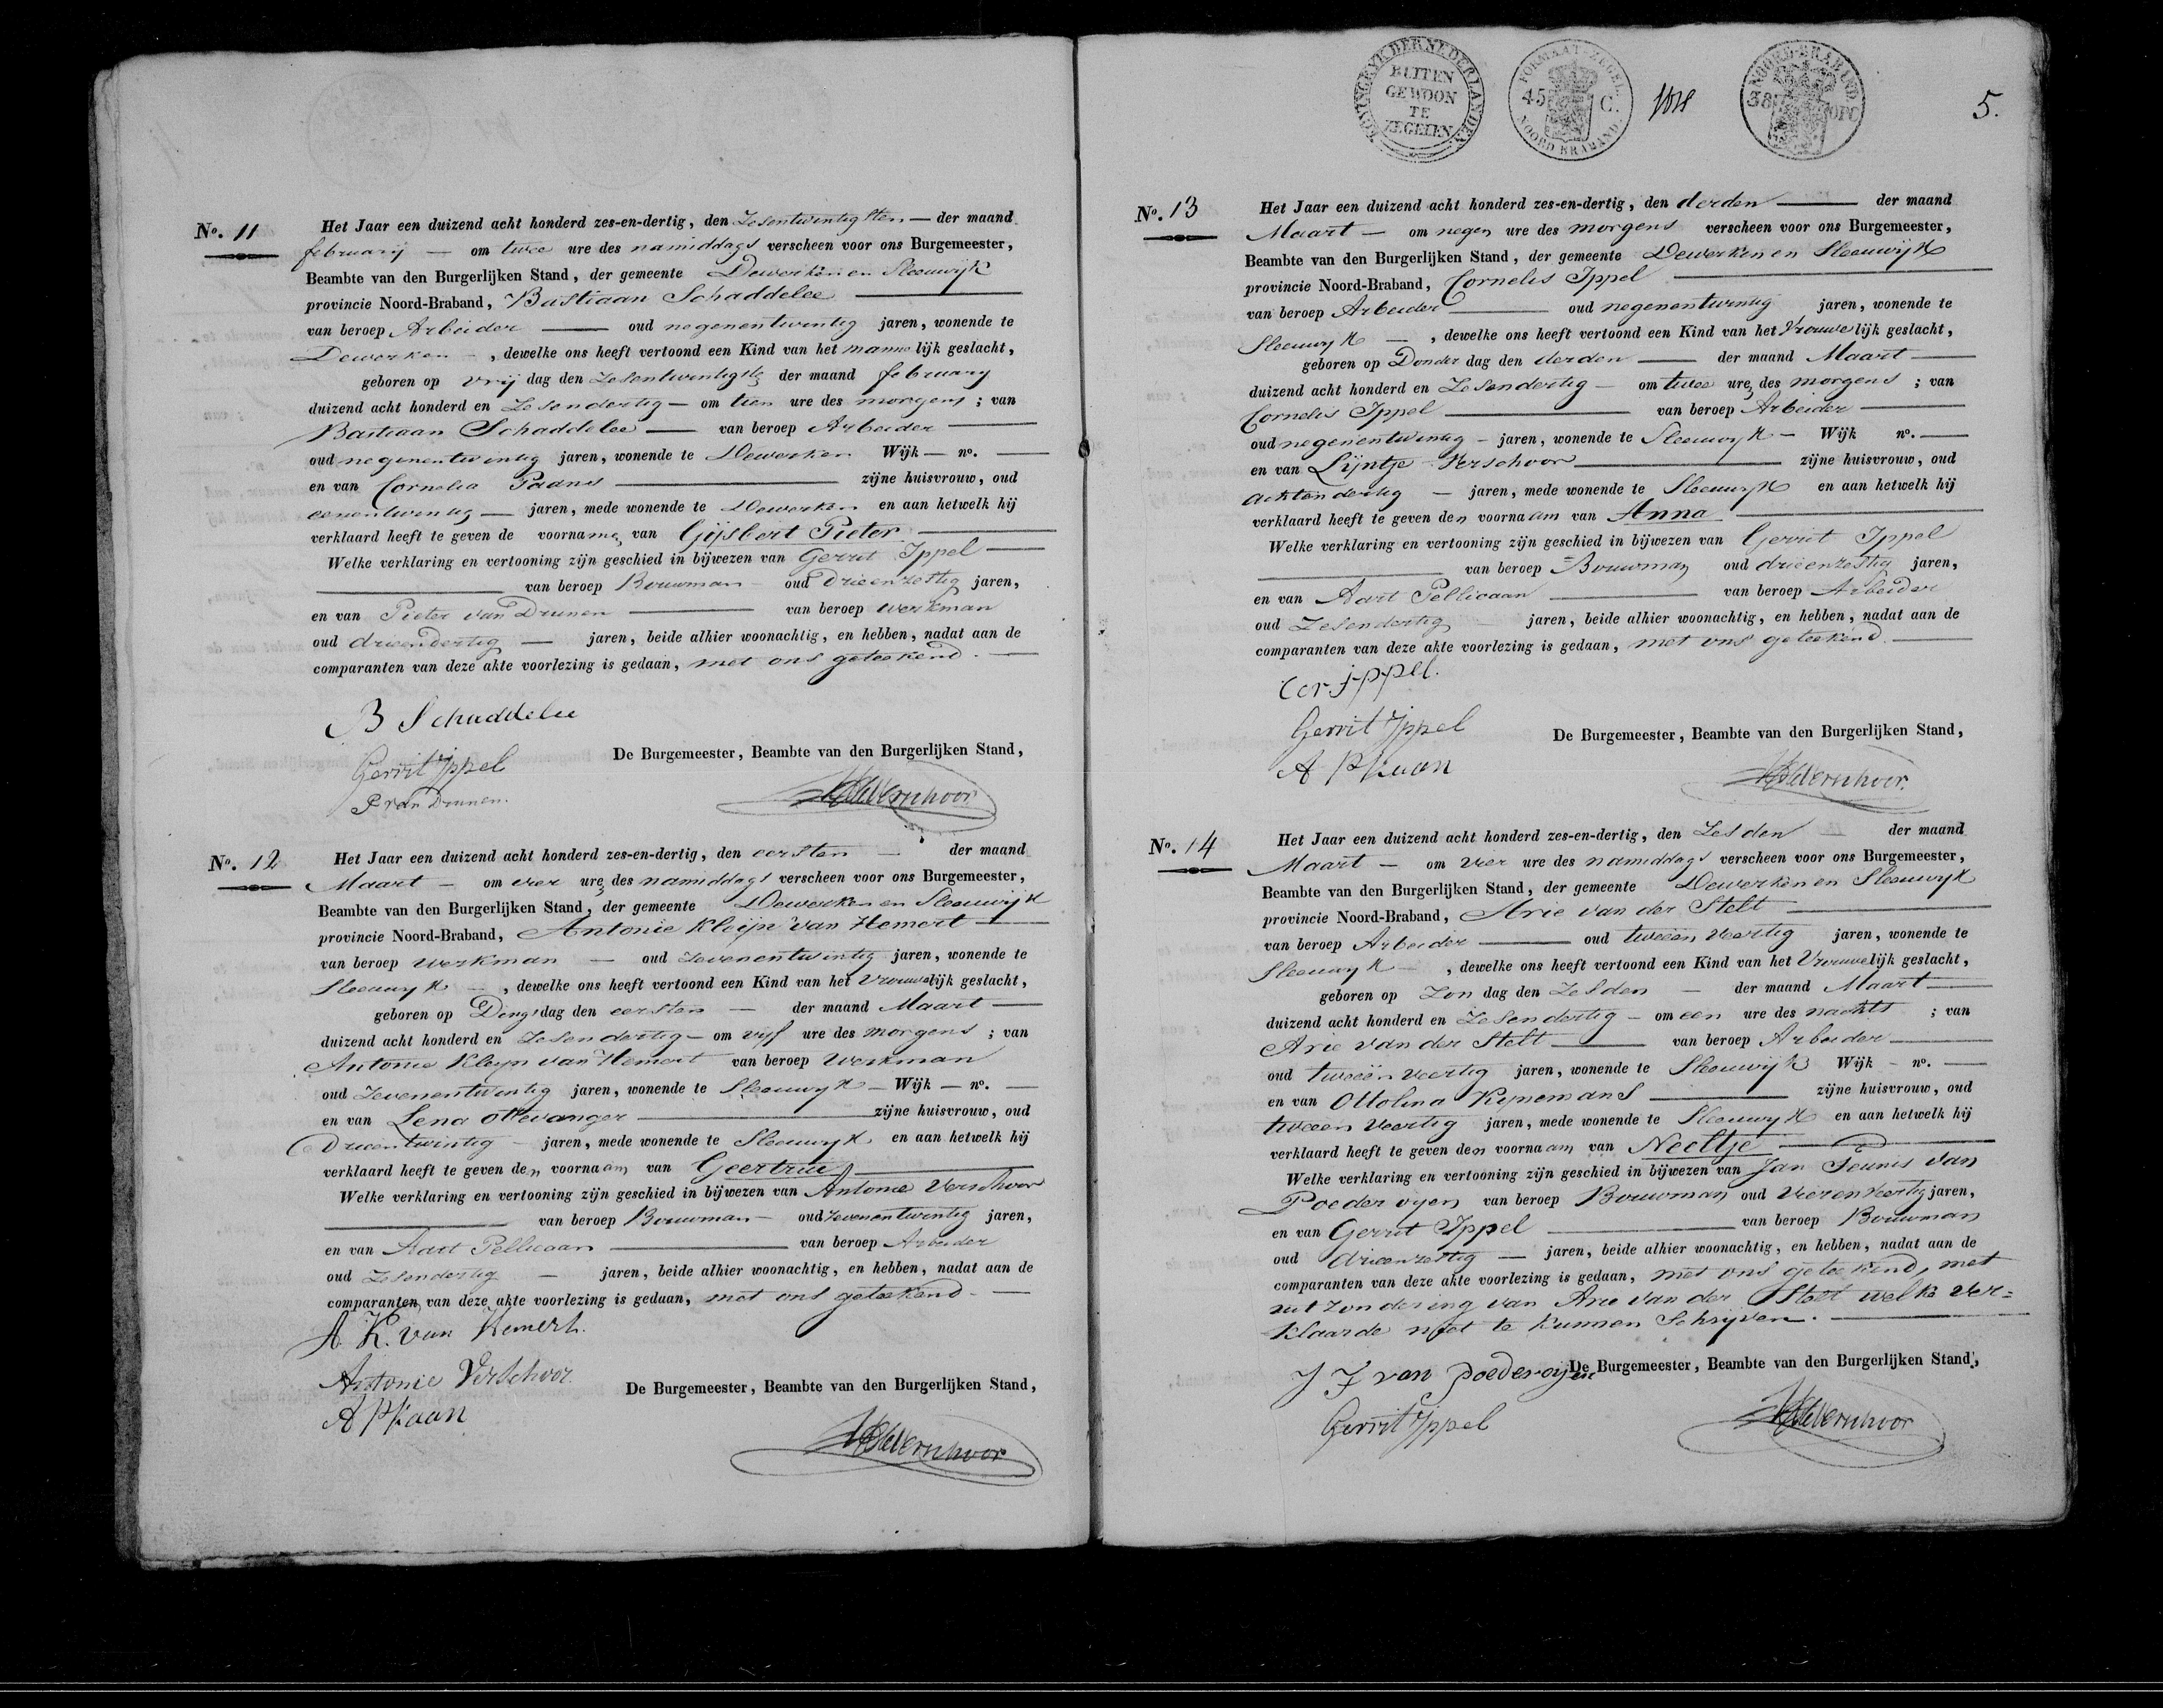 No. 11
Het Jaar een duizend acht honderd zes-en-dertig, den Zesentwintigsten — der maand
february — om twee ure des namiddags verscheen voor ons Burgemeester,
Beambte van den Burgerlijken Stand, der gemeente Dewerken en Sleeuwijk
provincie Noord-Braband, Bastiaan Schaddelee
van beroep Arbeider — oud negenentwintig jaren, wonende te
Dewerken —, dewelke ons heeft vertoond een Kind van het mannelijk geslacht,
geboren op vrij dag den Zesentwintigste der maand february
duizend acht honderd en Zesendertig — om tien ure des morgens ; van
Bastiaan Schaddelee — van beroep Arbeider
oud negenentwintig jaren, wonende te Dewerken Wijk — no. —
en van Cornelia Paans — zijne huisvrouw, oud
eenentwintig — jaren, mede wonende te Dewerken en aan hetwelk hij
verklaard heeft te geven de voorname van Gijsbert Pieter
Welke verklaring en vertooning zijn geschied in bijwezen van Gerrit Ippel
van beroep Bouwman — oud Drieenzestig jaren,
en van Pieter van Drunen — van beroep werkman
oud drieendertig — jaren, beide alhier woonachtig, en hebben, nadat aan de
comparanten van deze akte voorlezing is gedaan, met ons geteekend. —
B Schaddelee
De Burgemeester, Beambte van den Burgerlijken Stand,
Gerrit Ippel
P van Drunen.
No. 12
Het Jaar een duizend acht honderd zes-en-dertig, den eersten — der maand
Maart — om vier ure des namiddags verscheen voor ons Burgemeester,
Beambte van den Burgerlijken Stand, der gemeente Dewerken en Sleeuwijk
provincie Noord-Braband, Antonie Kleijn van Hemert
van beroep werkman — oud Zevenentwintig jaren, wonende te
Sleeuwyk —, dewelke ons heeft vertoond een Kind van het Vrouwelijk geslacht,
geboren op Dings dag den eersten — der maand Maart —
duizend acht honderd en Zesendertig — om vijf ure des morgens ; van
Antonie Kleyn van Hemert van beroep Werkman
oud Zevenentwintig jaren, wonende te Sleeuwyk — Wijk — no. —
en van Lena Ottevanger — zijne huisvrouw, oud
Drieentwintig — jaren, mede wonende te Sleeuwyk en aan hetwelk hij
verklaard heeft te geven den voornaam van Geertrui
Welke verklaring en vertooning zijn geschied in bijwezen van Antonie Verschoor
van beroep Bouwman — oud Zevenentwintig jaren,
en van Aart Pellicaan — van beroep Arbeider
oud Zesendertig — jaren, beide alhier woonachtig, en hebben, nadat aan de
comparanten van deze akte voorlezing is gedaan, met ons geteekend. —
A. K. van Hemert.
Antonie Verschoor.
De Burgemeester, Beambte van den Burgerlijken Stand,
KONINGRYK DER NEDERLANDEN
BUITEN
GEWOON
TE
ZEGELEN
FORMAAT-ZEGEL.
45 C.
NOORD BRABAND.
NOORD-BRABAND
38
OPC
5.
No. 13
Het Jaar een duizend acht honderd zes-en-dertig, den derden — der maand
Maart — om negen ure des morgens verscheen voor ons Burgemeester,
Beambte van den Burgerlijken Stand, der gemeente Dewerken en Sleeuwijk
provincie Noord-Braband, Cornelis Ippel
van beroep Arbeider — oud negenentwintig jaren, wonende te
Sleeuwyk —, dewelke ons heeft vertoond een Kind van het Vrouwelijk geslacht,
geboren op Donder dag den derden — der maand Maart —
duizend acht honderd en Zesendertig — om twee ure des morgens ; van
Cornelis Ippel — van beroep Arbeider —
oud negenentwintig — jaren, wonende te Sleeuwyk — Wijk no. —
en van Lijntje Verschoor — zijne huisvrouw, oud
achtendertig — jaren, mede wonende te Sleeuwyk en aan hetwelk hij
verklaard heeft te geven den voornaam van Anna
Welke verklaring en vertooning zijn geschied in bijwezen van Gerrit Ippel
van beroep Bouwman oud drieenzestig jaren,
en van Aart Pellicaan — van beroep Arbeider
oud Zesendertig — jaren, beide alhier woonachtig, en hebben, nadat aan de
comparanten van deze akte voorlezing is gedaan, met ons geteekend. —
Cor ippel.
Gerrit Ippel
De Burgemeester, Beambte van den Burgerlijken Stand,
No. 14
Het Jaar een duizend acht honderd zes-en-dertig, den Zesden der maand
Maart — om vier ure des namiddags verscheen voor ons Burgemeester,
Beambte van den Burgerlijken Stand, der gemeente Dewerken en Sleeuwyk
provincie Noord-Braband, Arie van der Stelt
van beroep Arbeider — oud tweeën Veertig jaren, wonende te
Sleeuwyk —, dewelke ons heeft vertoond een Kind van het Vrouwelijk geslacht,
geboren op Zon dag den Zesden — der maand Maart —
duizend acht honderd en Zesendertig — om een ure des nachts ; van
Arie van der Stelt — van beroep Arbeider —
oud tweeën Veertig jaren, wonende te Sleeuwijk Wijk — no. —
en van Ottolina Kynemans — zijne huisvrouw, oud
tweeen Veertig jaren, mede wonende te Sleeuwyk en aan hetwelk hij
verklaard heeft te geven den voornaam van Neeltje
Welke verklaring en vertooning zijn geschied in bijwezen van Jan Teunis van
Poederoyen van beroep Bouwman oud Vierenveertig jaren,
en van Gerrit Ippel — van beroep Bouwman
oud drieenzestig — jaren, beide alhier woonachtig, en hebben, nadat aan de
comparanten van deze akte voorlezing is gedaan, met ons geteekend, met
uitzondering van Arie van der Stelt welke ver=
klaarde niet te kunnen Schrijven.
J T van poederoyen
De Burgemeester, Beambte van den Burgerlijken Stand,
Gerrit Ippel